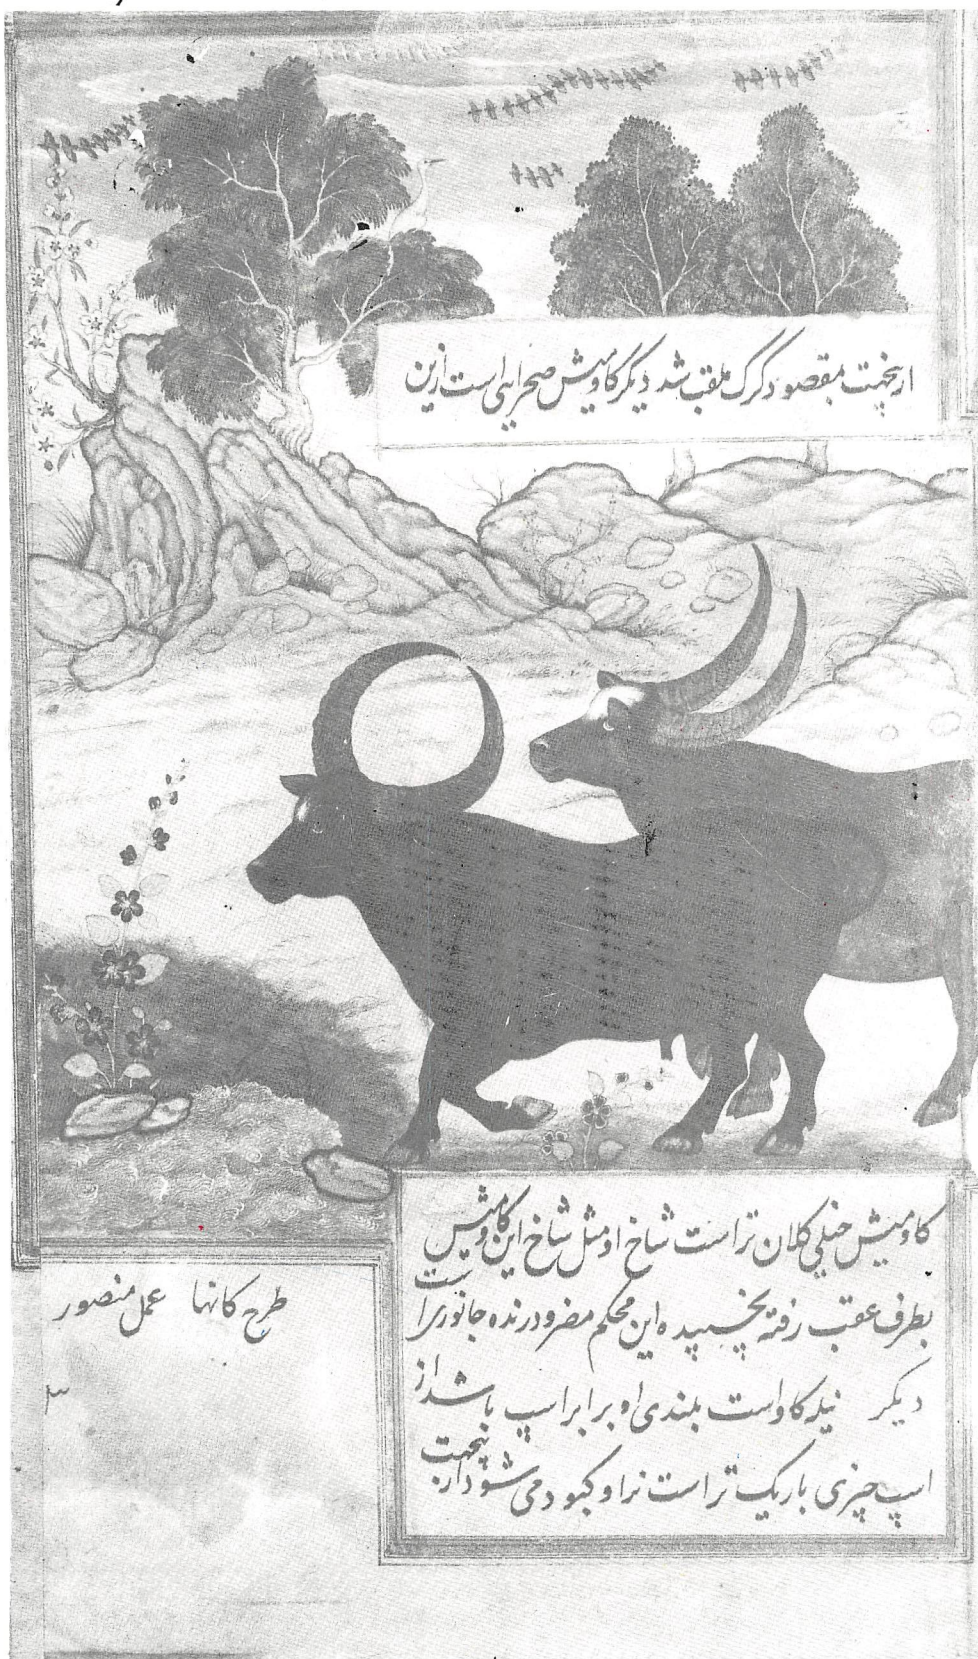 ازینجهت بمقصود کرک ملقب شد دیکر کاومیش صحرایی است ازین
کاومیش خیلی کلان تراست شاخ او مثل شاخ این کاومیش
بطرف عقب رفته بخسپیده این محکم مضر و درنده جانوری است
دیکر نیله کاو است بلندی او برابر اسپ باشد از
اسپ چیزی باریک تراست نر او کبود می شود ازینجهت
طرح کانها عمل منصور
۳